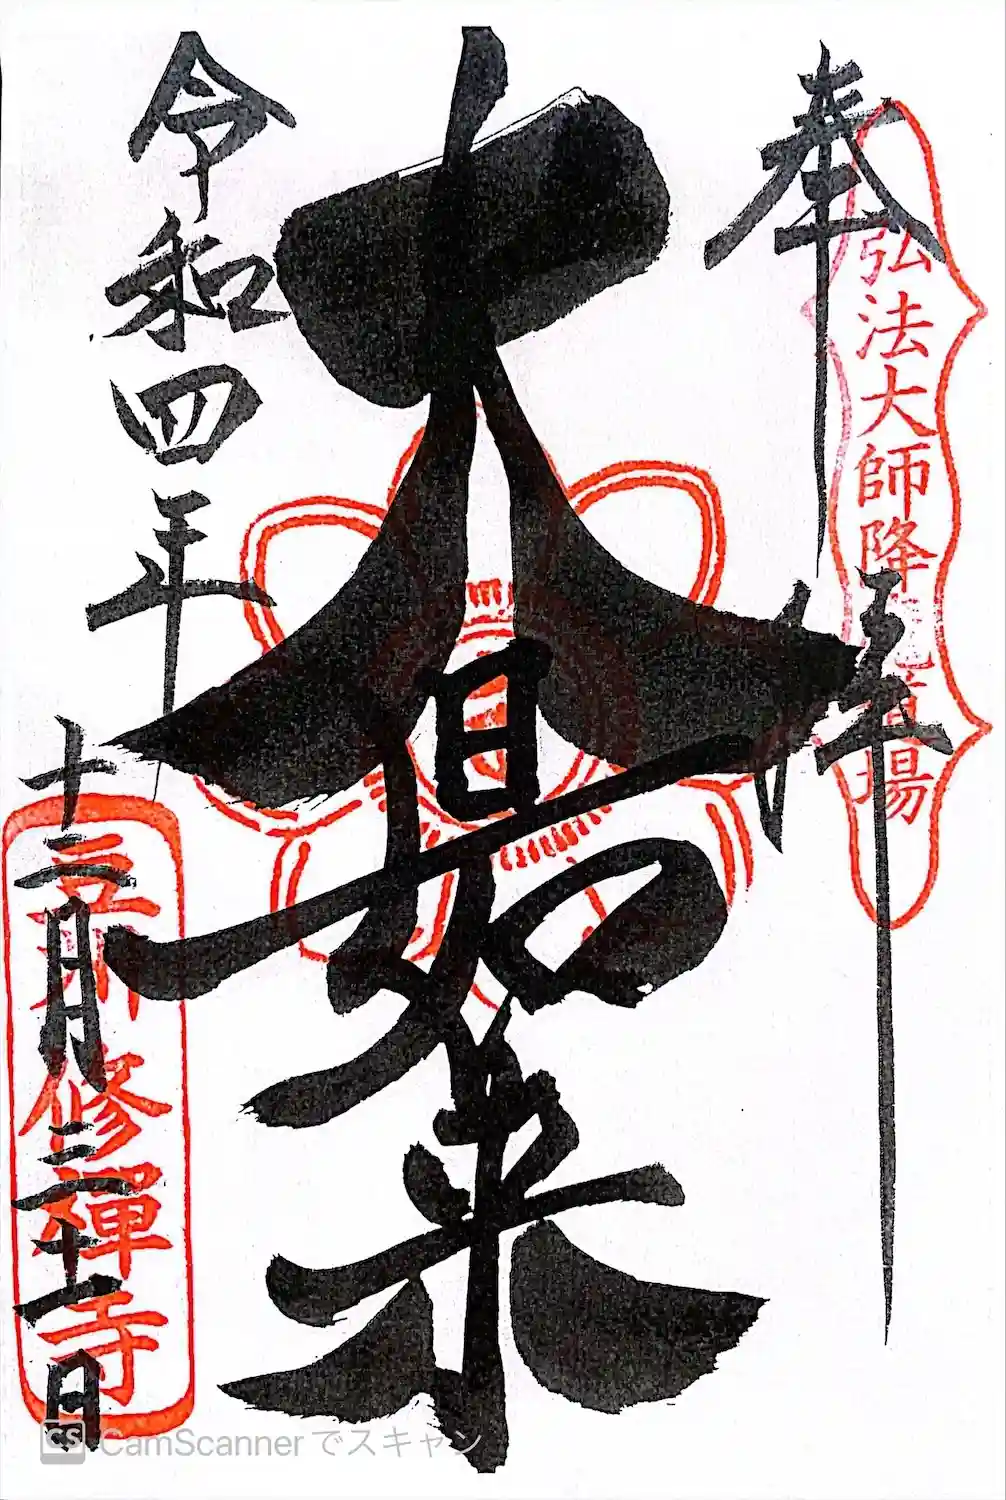 奉拝
弘法大師降 道場
大日如来
令和四年
十二月三十一日
豆州修禪寺
CS CamScannerでスキャン